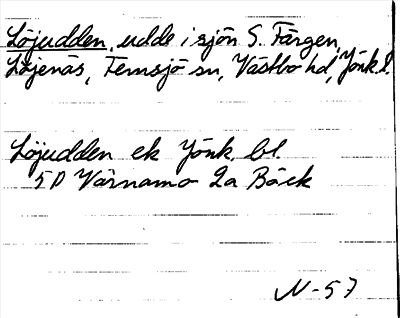 Löjudden, udde i sjön S. Färgen,
Löjenäs, Femsjö sn, Västbo hd, Jönk. l.
Löjudden ek Jönk. bl.
5D Värnamo 2a Bäck
N-57